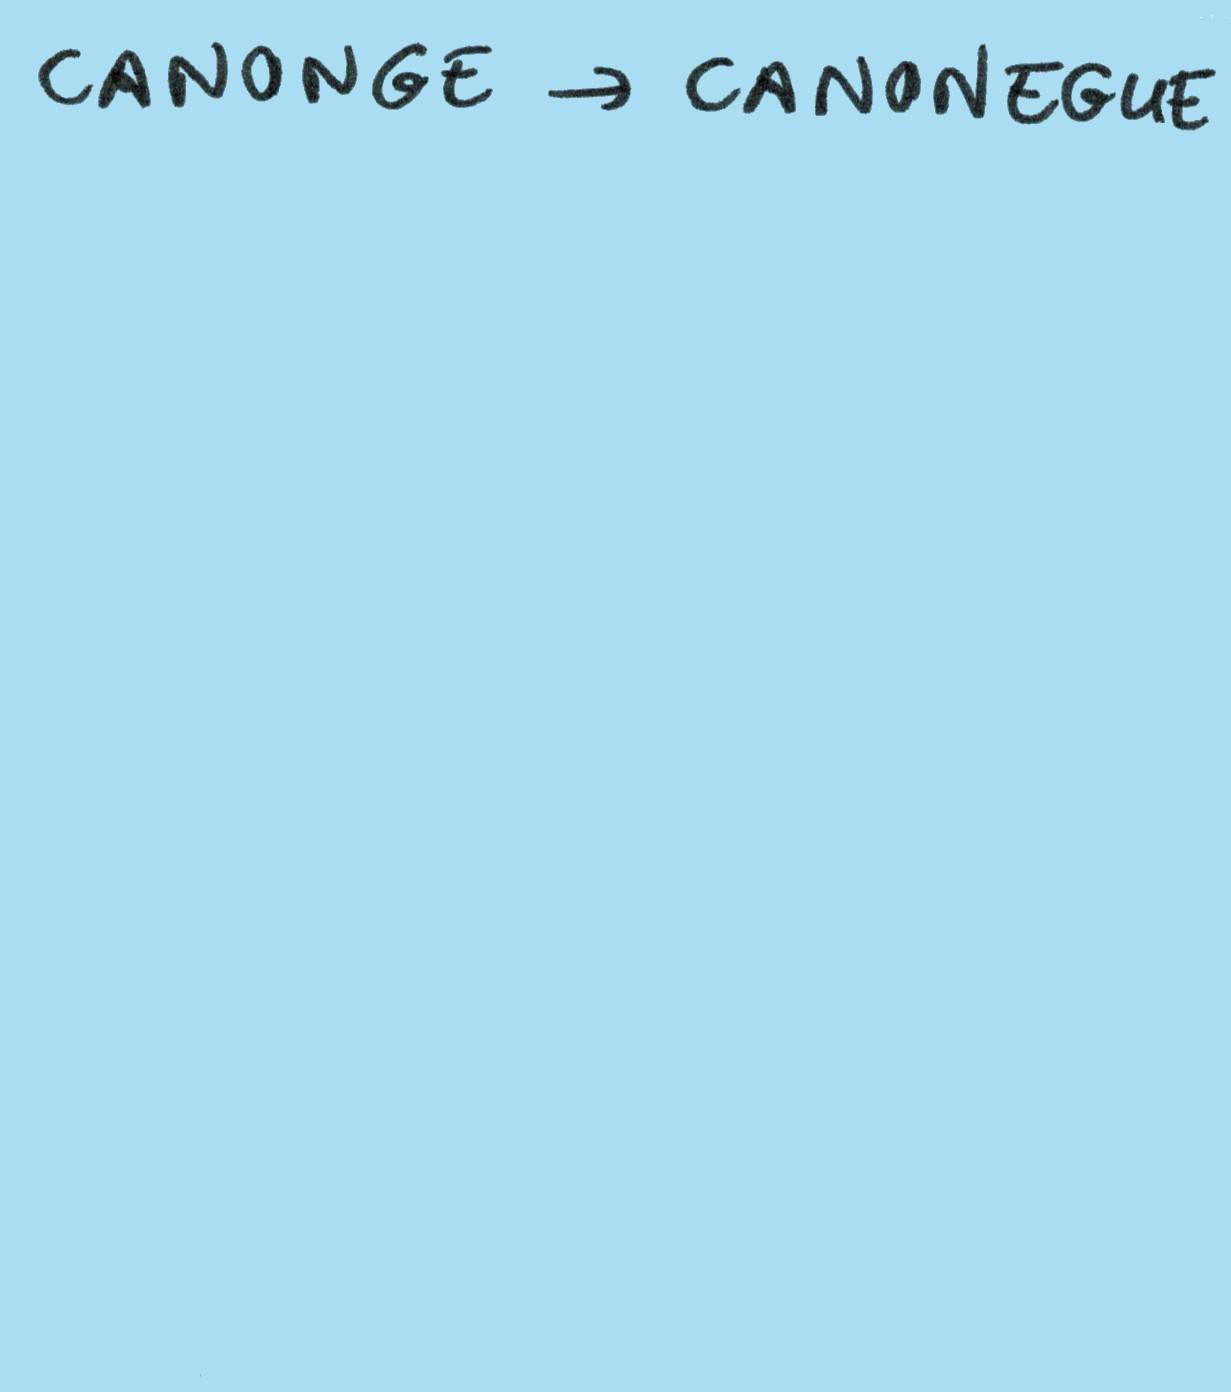 CANONGE → CANONEGUE